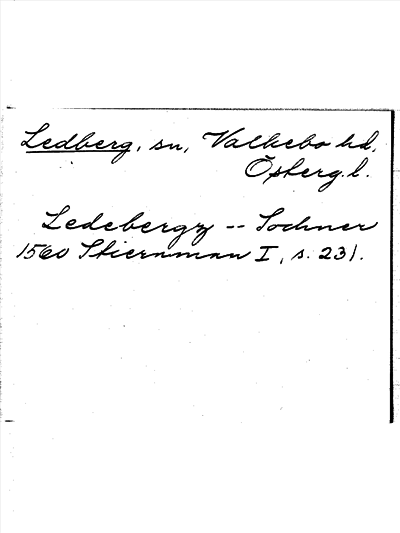 Ledberg, sn, Valkebo hd,
Österg.l.
Ledebergz -- Sochner
1560 Stiernman I, s. 231.